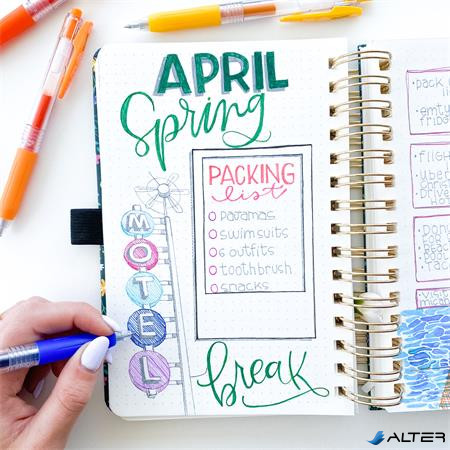 APRIL
Spring
PACKING
list
pajamas
swimsuits
6 outfits
toothbrush
snacks
MOTEL
break
• pack
• emty
fridge
• Uber
• Drive
ALTER